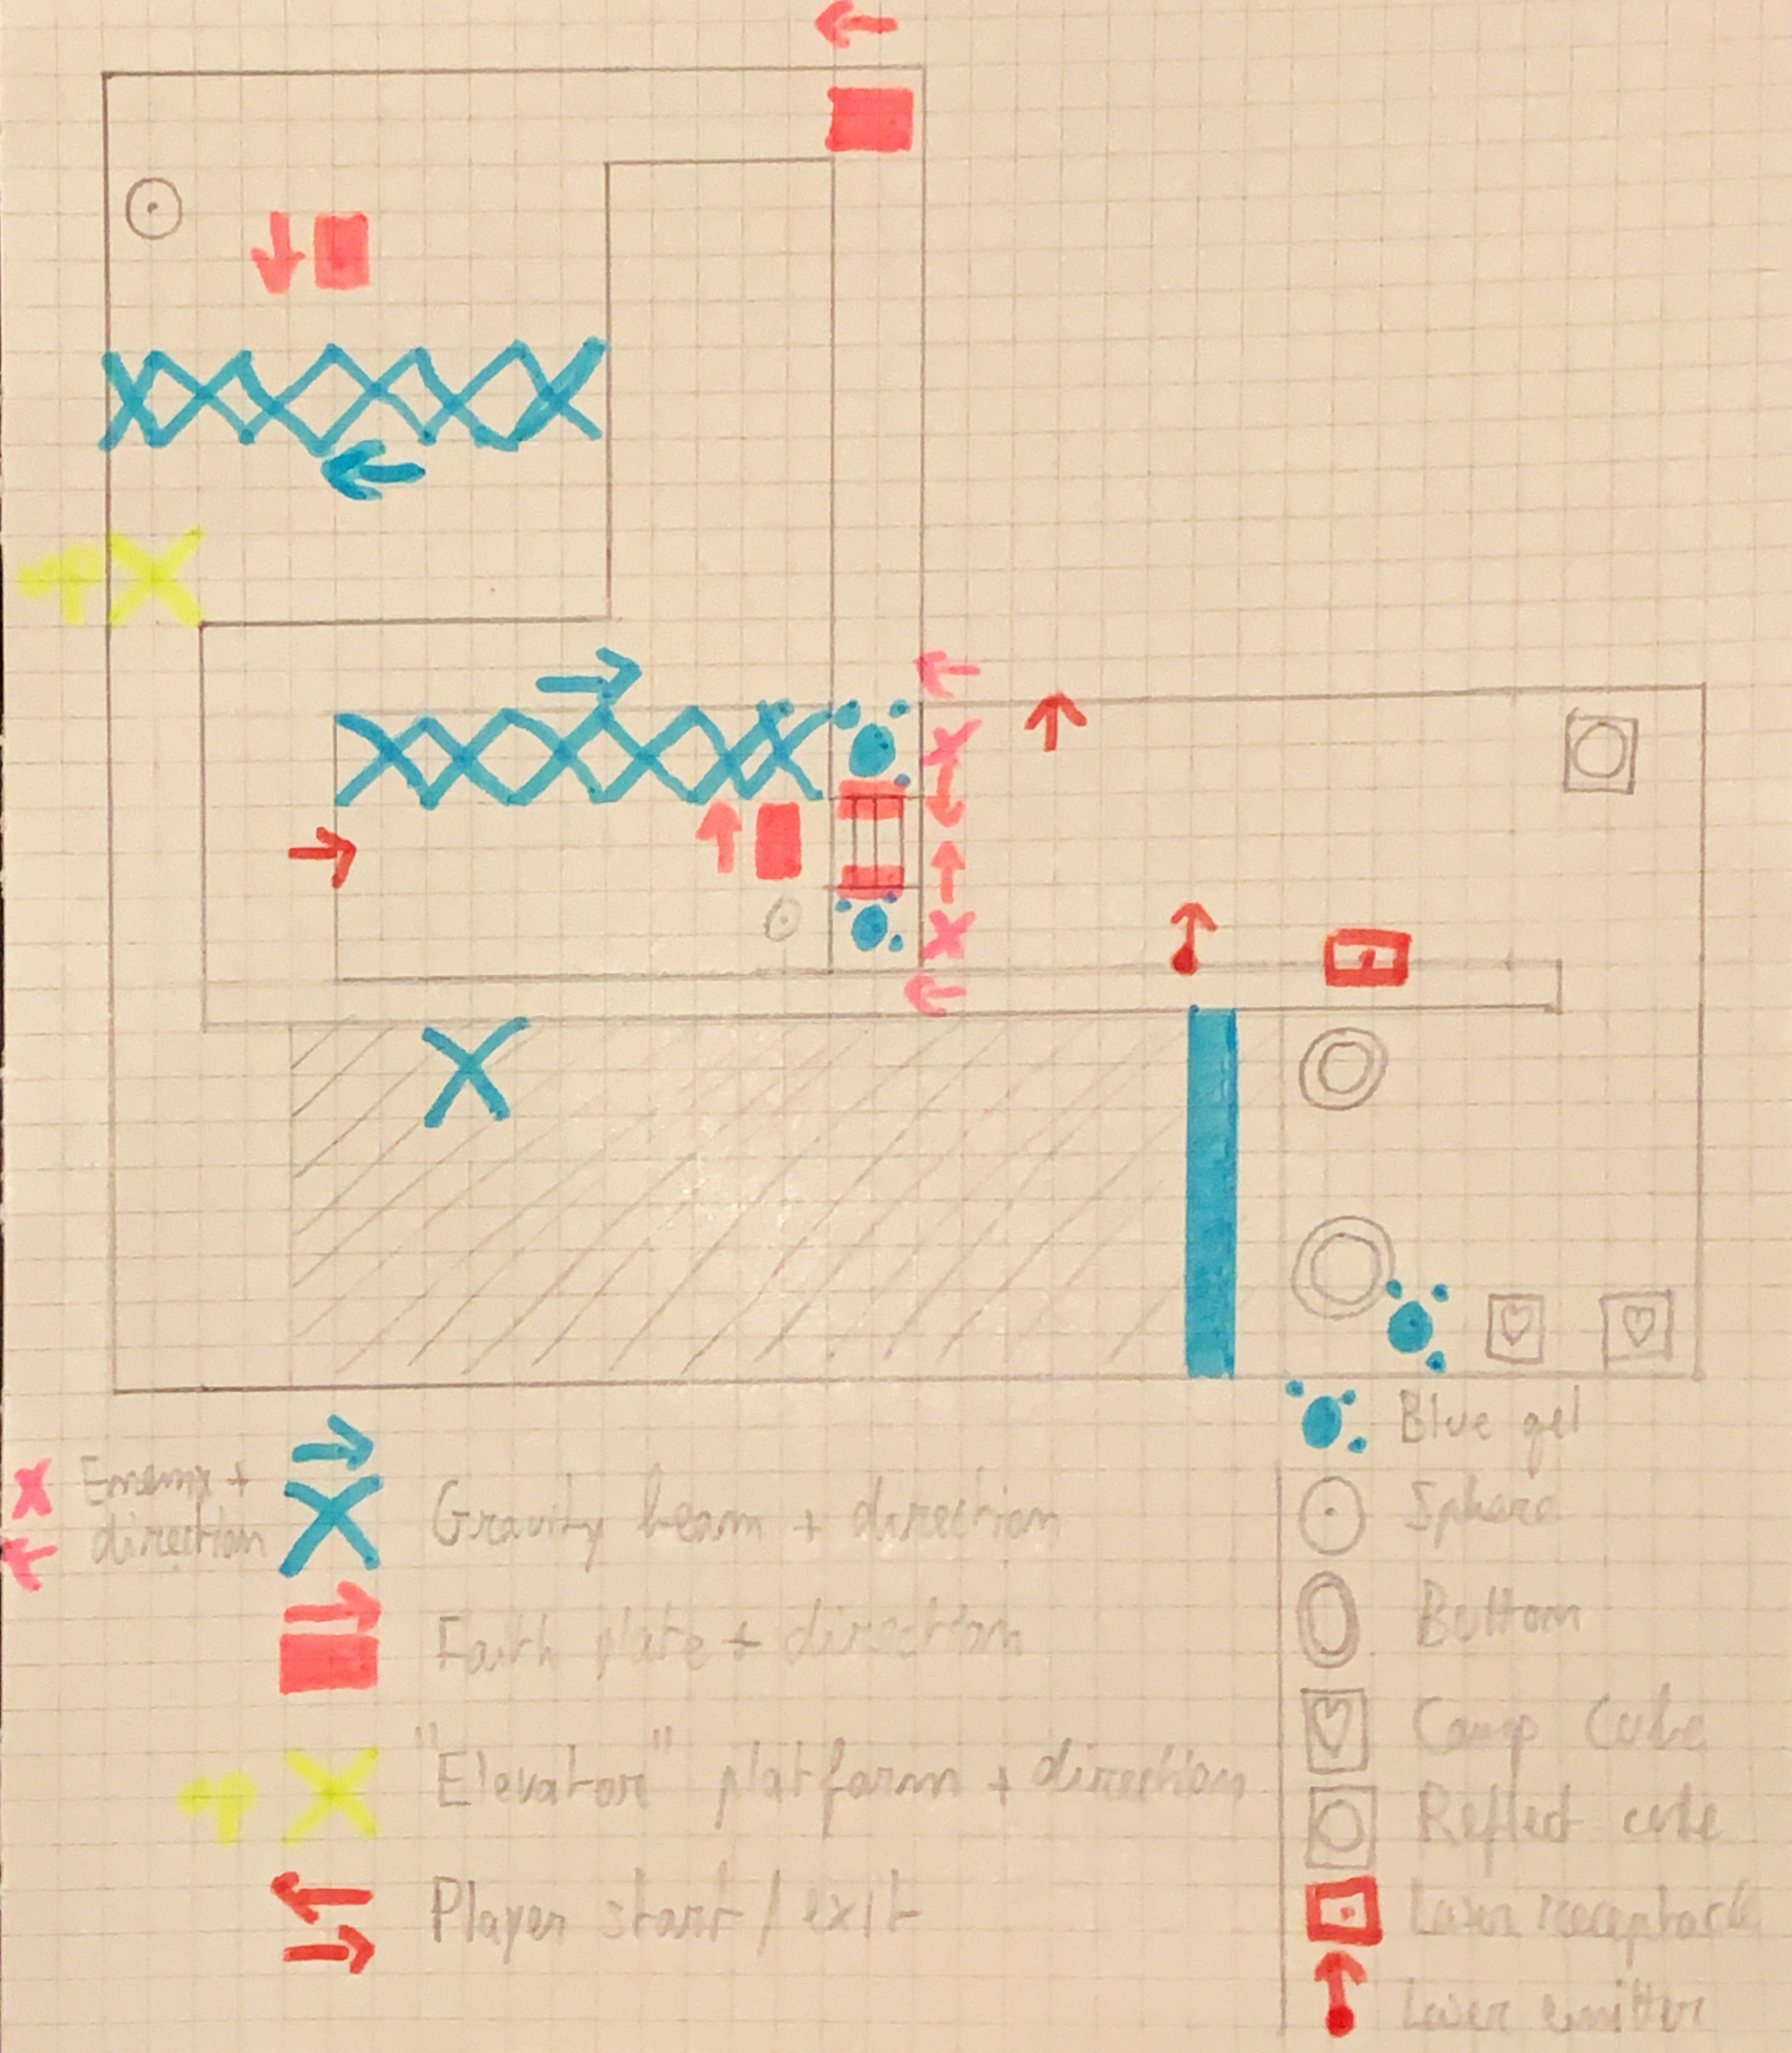 up
Enemy +
direction
Gravity beam + direction
Faith plate + direction
up
"Elevator" platform + direction
Player start / exit
Blue gel
Sphere
Button
Comp Cube
Reflect cube
Laser receptacle
Laser emitter